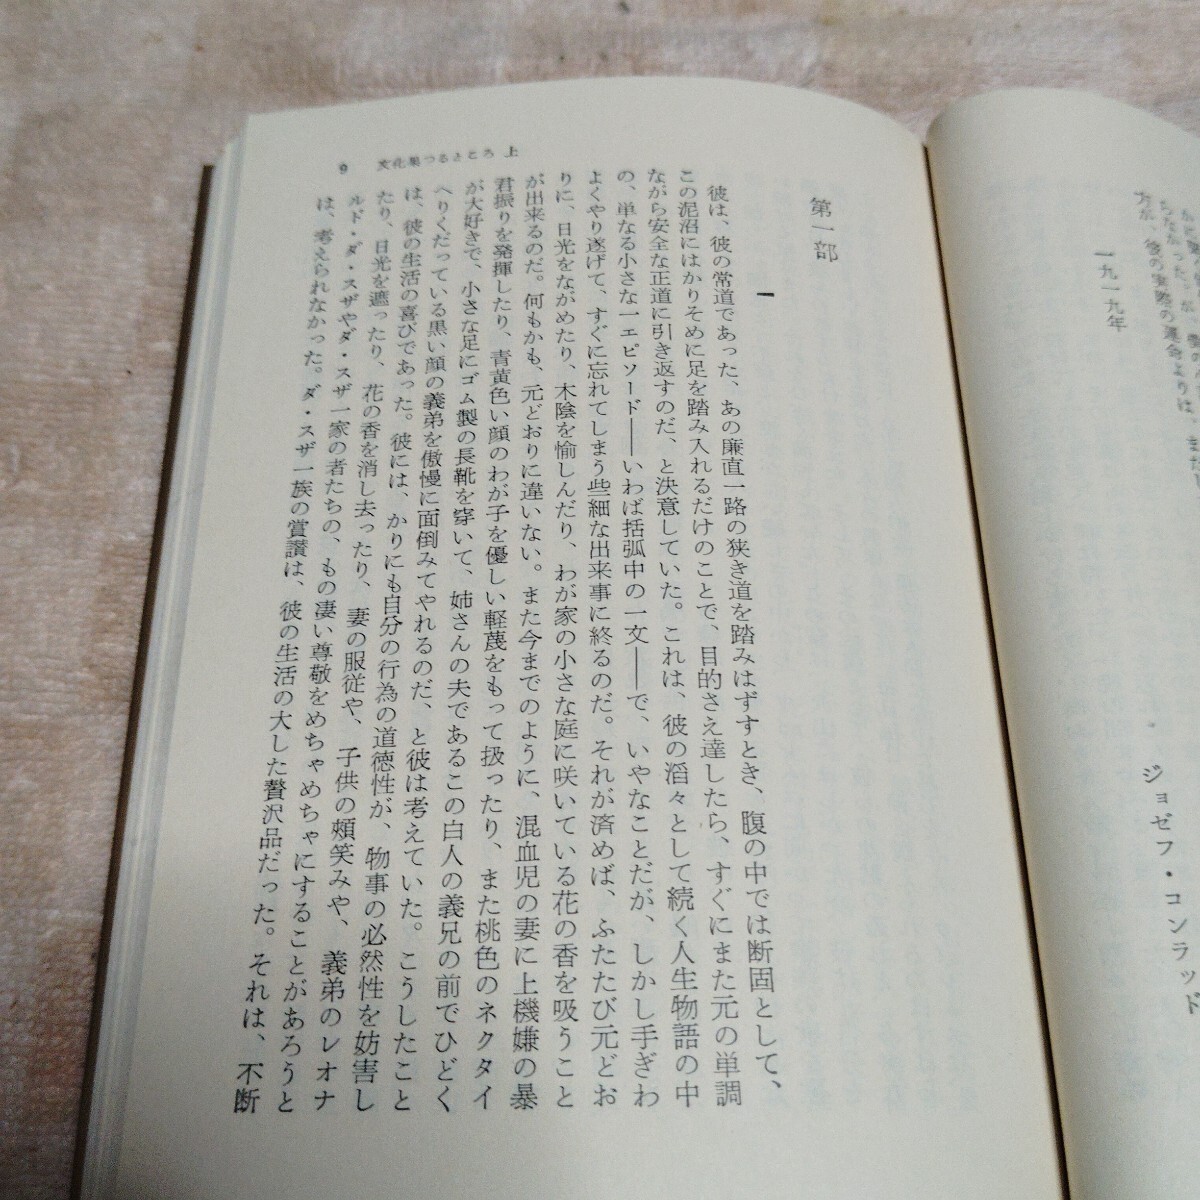 一九一九年
ジョゼフ・コンラッド
9 文化果つるところ 上
第一部
一
彼は、彼の常道であった、あの廉直一路の狭き道を踏みはずすとき、腹の中では断固として、
この泥沼にはかりそめに足を踏み入れるだけのことで、目的さえ達したら、すぐにまた元の単調
ながら安全な正道に引き返すのだ、と決意していた。これは、彼の滔々として続く人生物語の中
の、単なる小さな一エピソード――いわば括弧中の一文――で、いやなことだが、しかし手ぎわ
よくやり遂げて、すぐに忘れてしまう些細な出来事に終るのだ。それが済めば、ふたたび元どお
りに、日光をながめたり、木陰を愉しんだり、わが家の小さな庭に咲いている花の香を吸うこと
が出来るのだ。何もかも、元どおりに違いない。また今までのように、混血児の妻に上機嫌の暴
君振りを発揮したり、青黄色い顔のわが子を優しい軽蔑をもって扱ったり、また桃色のネクタイ
が大好きで、小さな足にゴム製の長靴を穿いて、姉さんの夫であるこの白人の義兄の前でひどく
へりくだっている黒い顔の義弟を傲慢に面倒みてやれるのだ、と彼は考えていた。こうしたこと
は、彼の生活の喜びであった。彼には、かりにも自分の行為の道徳性が、物事の必然性を妨害し
たり、日光を遮ったり、花の香を消し去ったり、妻の服従や、子供の頰笑みや、義弟のレオナ
ルド・ダ・スザやダ・スザ一家の者たちの、もの凄い尊敬をめちゃめちゃにすることがあろうと
は、考えられなかった。ダ・スザ一族の賞讃は、彼の生活の大した贅沢品だった。それは、不断